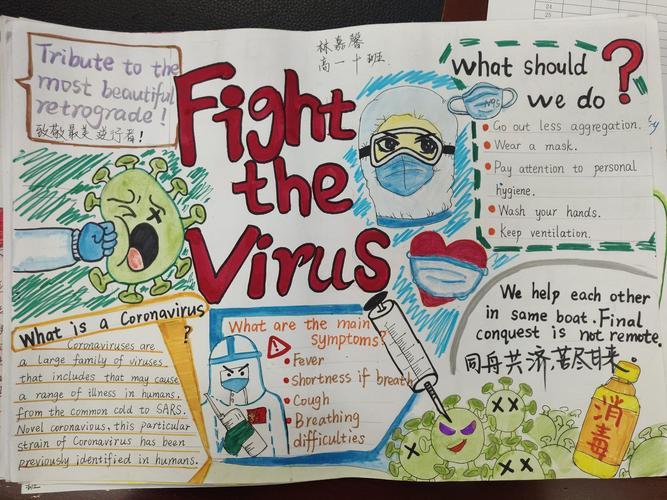 Tribute to the
most beautiful
retrograde!
致敬最美逆行者!
林嘉馨
高一十班
Fight
the
Virus
What should
we do ?
N95
Go out less aggregation.
Wear a mask.
Pay attention to personal
hygiene.
Wash your hands.
Keep ventilation.
We help each other
in same boat. Final
conquest is not remote.
同舟共济,苦尽甘来.
What is a Coronavirus
?
Coronaviruses are
a large family of viruses
that includes that may cause
a range of illness in humans,
from the common cold to SARS.
Novel coronavious, this particular
strain of Coronavirus has been
previously identified in humans.
What are the main
symptoms?
!
Fever
Shortness if breath
Cough
Breathing
difficulties
消毒